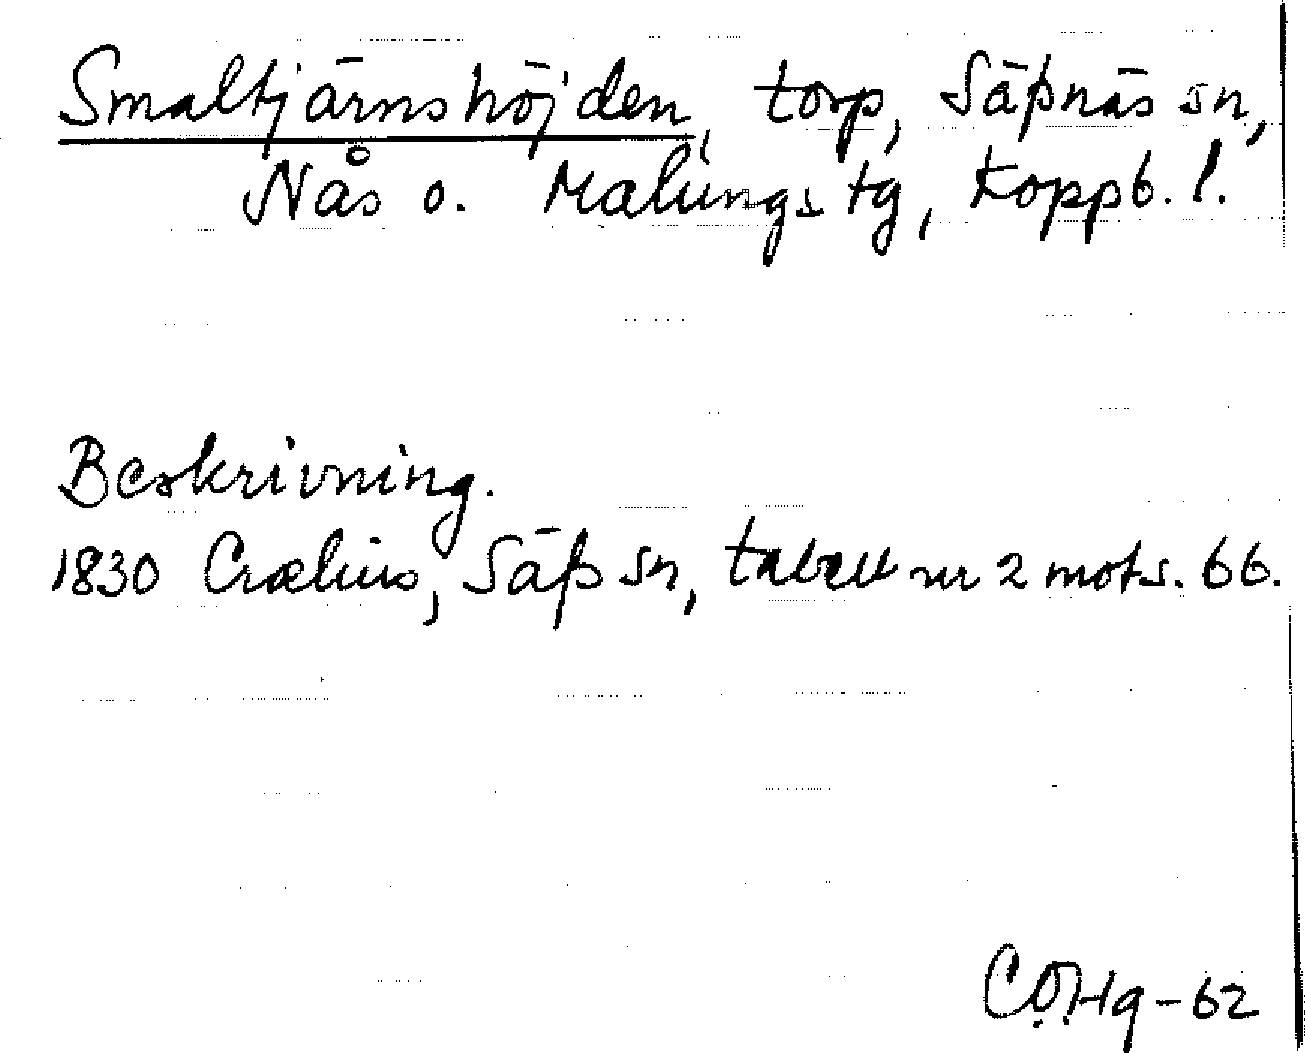 Smaltjärnshöjden, torp, Säfsnäs sn,
Nås o. Malungs tg, Koppb. l.
Beskrivning.
1830 Crælius, Säfs sn, tabell nr 2 mots. 66.
COHg-62